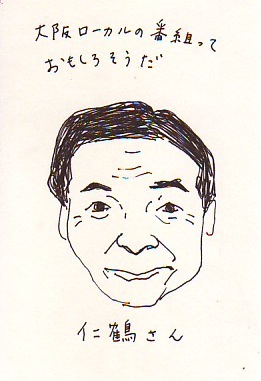 大阪ローカルの番組って
おもしろそうだ
仁鶴さん